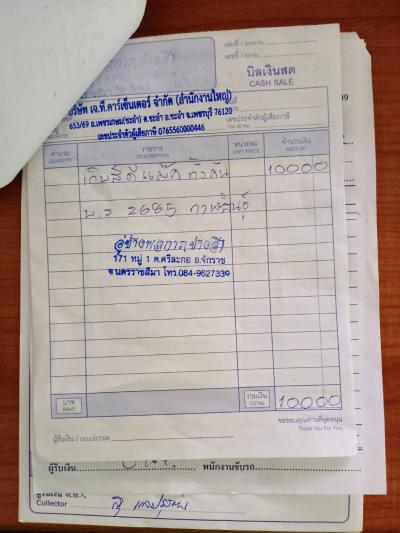 เล่มที่ / Book No.
เลขที่ / Bill No.
บิลเงินสด
CASH SALE
บริษัท เจ.ที.คาร์เซ็นเตอร์ จำกัด (สำนักงานใหญ่)
653/69 ถ.เพชรเกษม ต.ชะอำ อ.ชะอำ จ.เพชรบุรี 76120
เลขประจำตัวผู้เสียภาษี 0765560000446
เลขประจำตัวผู้เสียภาษี
Tax ID No.
จำนวน
QUANTITY
รายการ
DESCRIPTION
หน่วยละ
UNIT PRICE
จำนวนเงิน
AMOUNT
เก็บสีดำแม็ค ทั้งคัน 10000
บ.ร 2685 กาฬสินธุ์
อู่ช่างพลการช่างสี
171 หมู่ 1 ต.ศรีละกอ อ.จักราช
จ.นครราชสีมา โทร.084-9627339
บาท
BAHT
รวมเงิน
TOTAL
10000
ขอขอบคุณท่านที่อุดหนุน
Thank You For You
ผู้รับเงิน / COLLECTOR
ผู้รับเงิน
พนักงานขับรถ
Collector